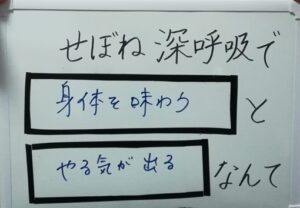 せぼね深呼吸で
身体を味わう と
やる気が出る なんて